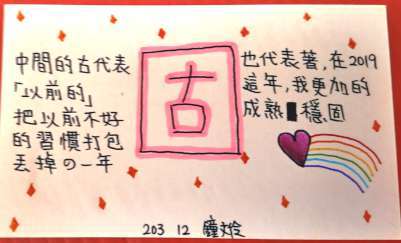 中間的古代表
「以前的」
把以前不好
的習慣打包
丟掉の一年
固
也代表著,在2019
這年,我更加的
成熟穩固
203 12